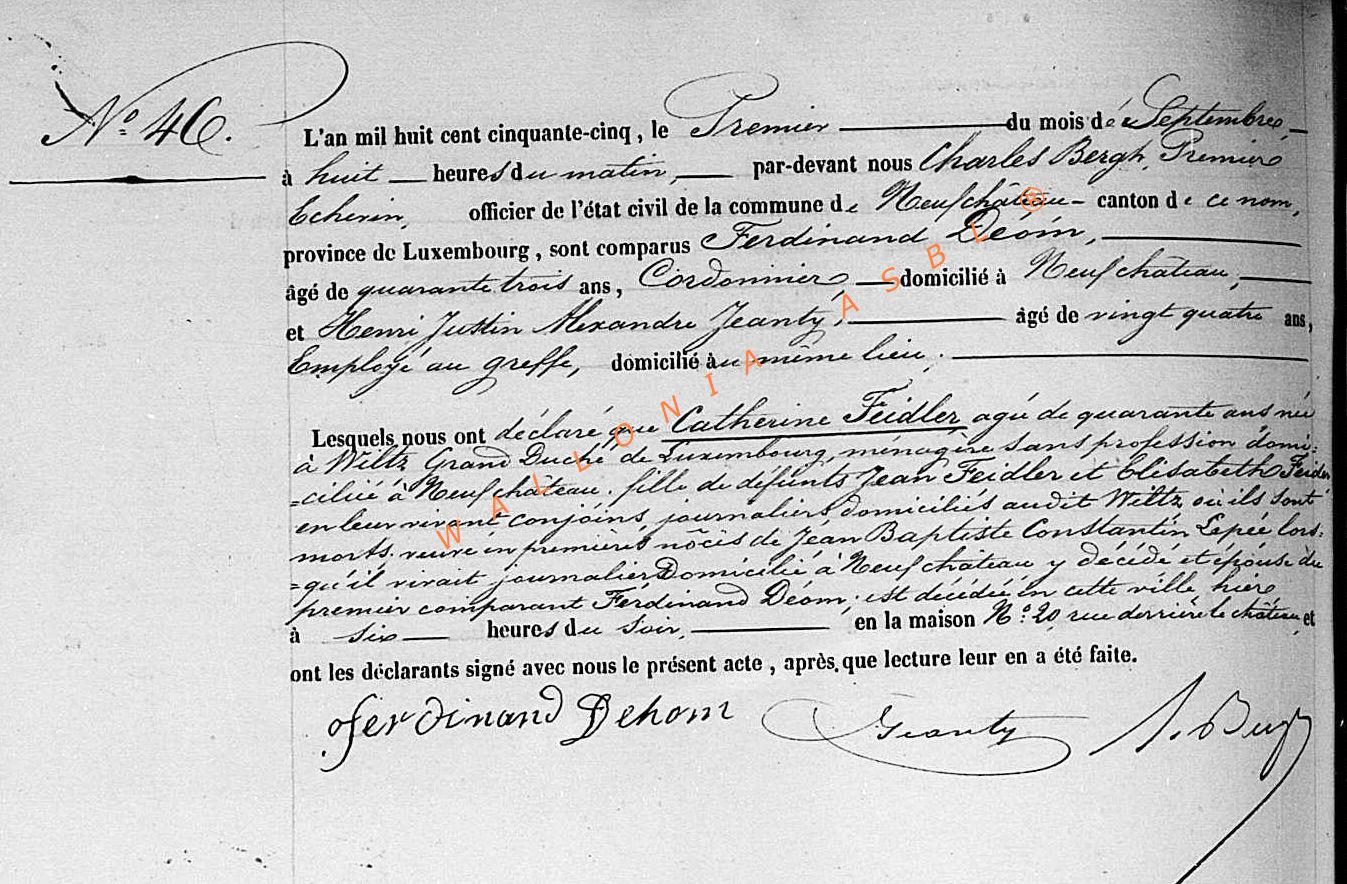 Nº 46.
L'an mil huit cent cinquante-cinq, le Premier du mois de Septembre,
à huit heures du matin, par-devant nous Charles Bergh, Premier
Echevin, officier de l'état civil de la commune de Neufchâteau - canton de ce nom,
province de Luxembourg, sont comparus Ferdinand Déom,
âgé de quarante trois ans, Cordonnier, domicilié à Neufchâteau,
et Henri Justin Alexandre Jeanty, âgé de vingt quatre ans,
Employé au greffe, domicilié au même lieu.
Lesquels nous ont déclaré que Catherine Feidler agée de quarante ans née
à Wiltz Grand Duché de Luxembourg, ménagère sans profession domi-
-ciliée à Neufchâteau, fille de défunts Jean Feidler et Elisabeth Feider
en leur vivant conjoins, journaliers, domiciliés audit Wiltz, où ils sont
morts, veuve en premières nôces de Jean Baptiste Constantin Lepée lors-
-qu'il vivait journalier Domicilié à Neufchâteau y décédé et épouse du
premier comparant Ferdinand Déom, est décédée en cette ville, hier
à six heures du soir, en la maison Nº 20, rue derrière le château, et
ont les déclarants signé avec nous le présent acte, après que lecture leur en a été faite.
Ferdinand Dehom Jeanty
WALLONIA ASBL ®